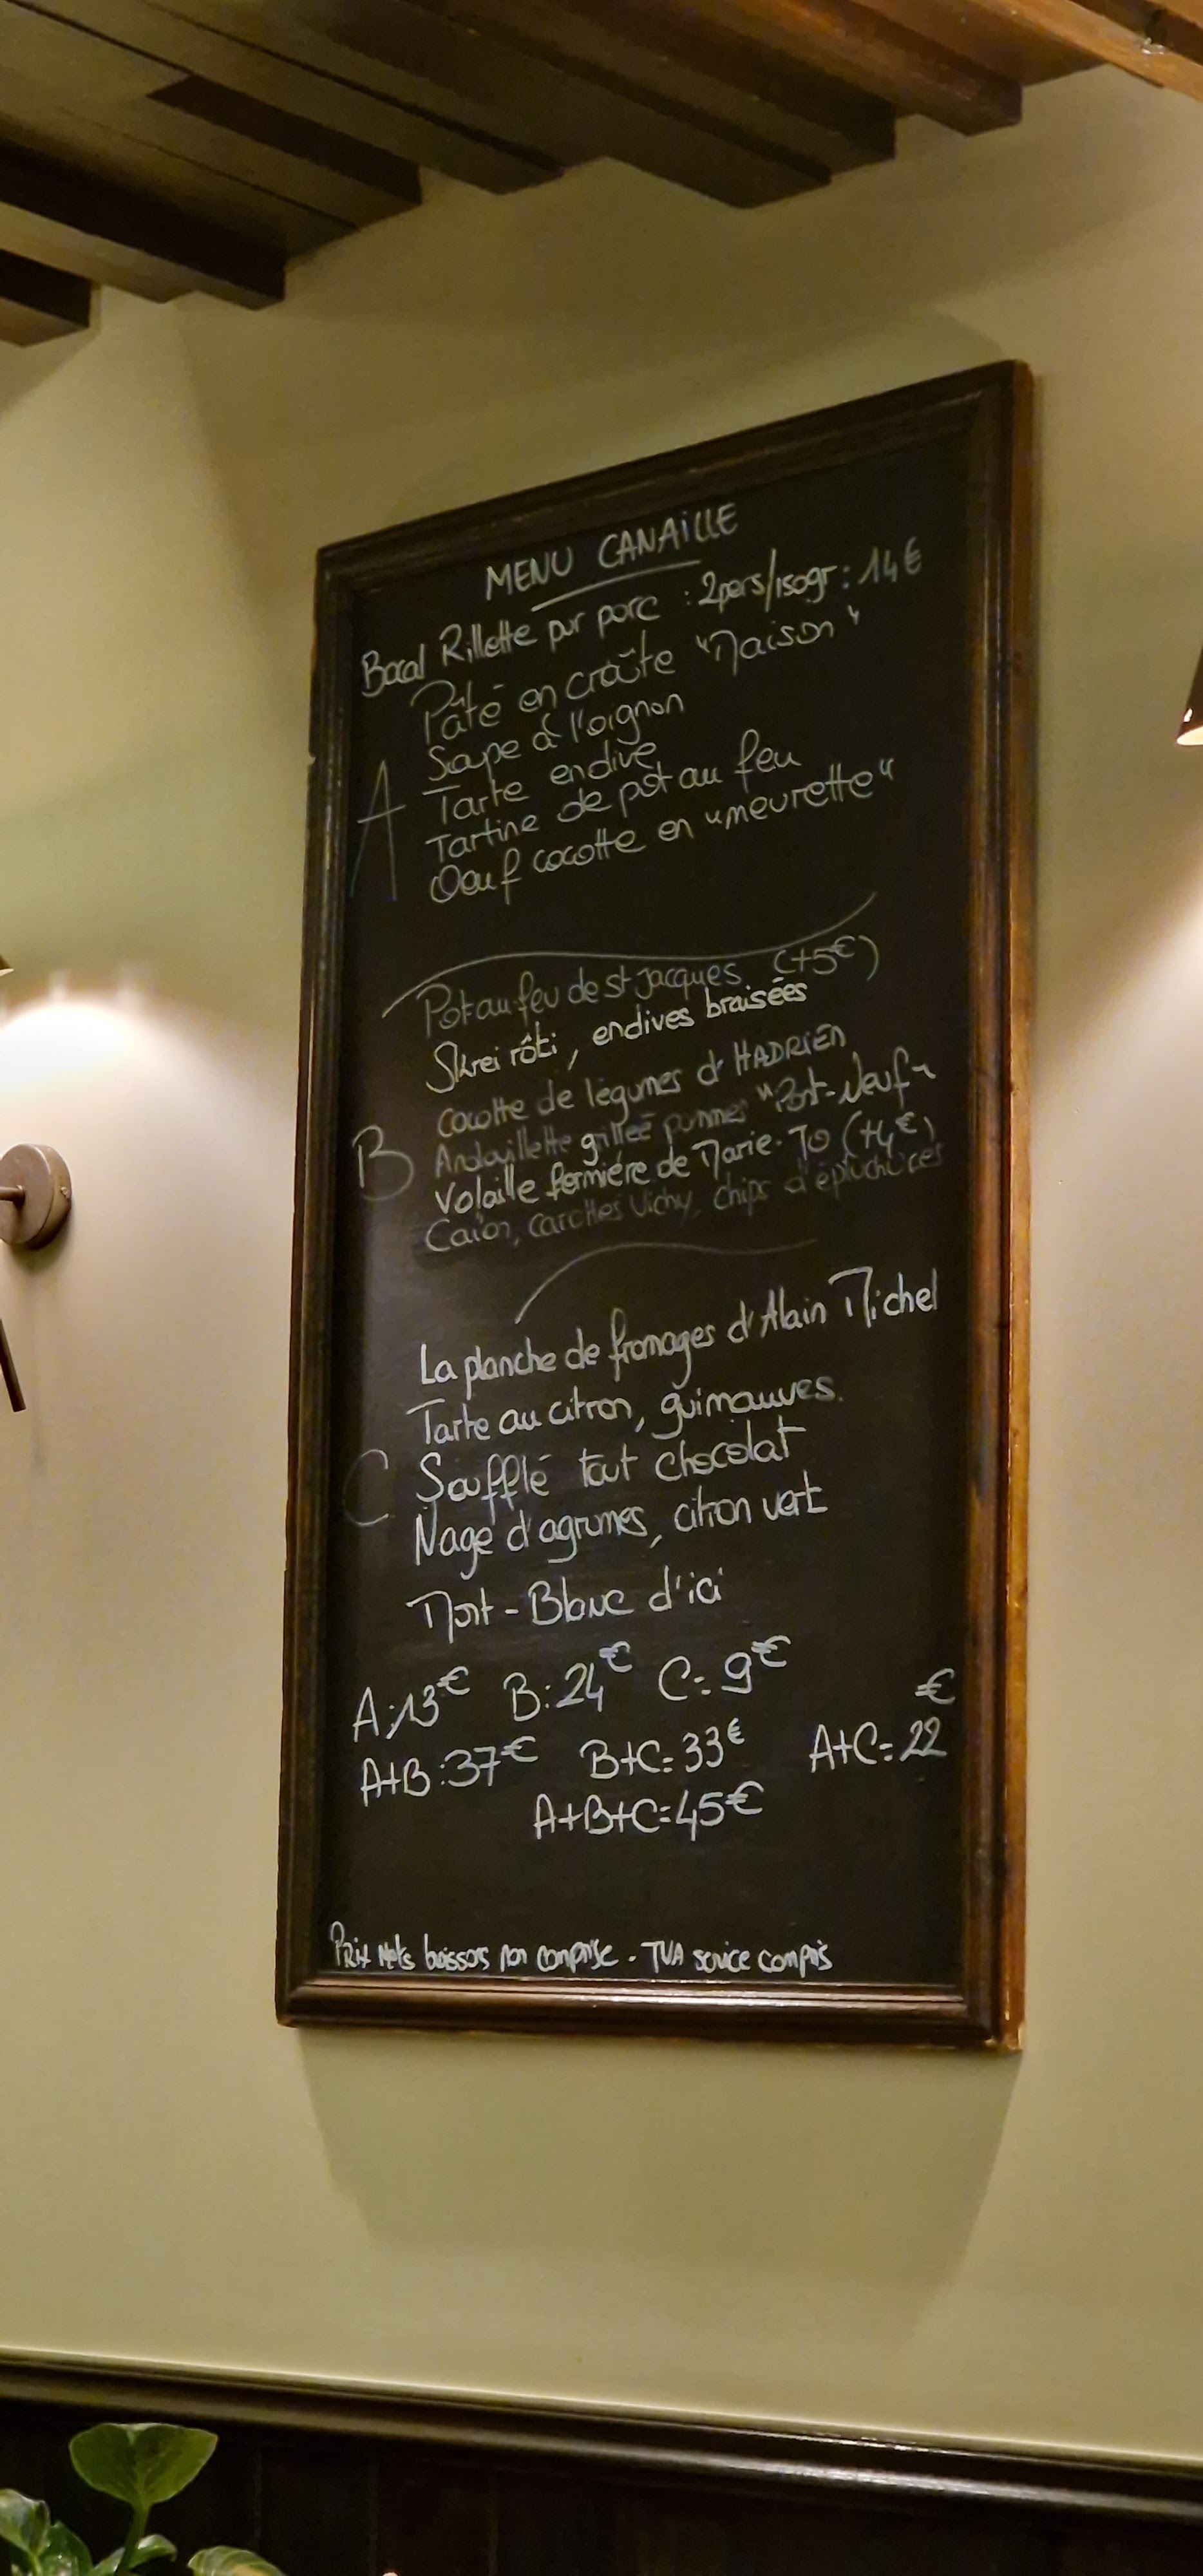 MENU CANAILLE
Bocal Rillette pur porc : 2pers/150gr : 14€
Pâté en croûte "Maison"
Soupe à l'oignon
A
Tarte endive
Tartine de pot au feu
Oeuf cocotte en "meurette"
Pot au feu de st jacques (+5€)
Skrei rôti, endives braisées
Cocotte de légumes d'HADRIEN
B
Andouillette grillée pommes "Pont-Neuf"
Volaille fermière de Marie-Jo (+4€)
Caïon, carottes Vichy, chips d'épluchures
La planche de fromages d'Alain Michel
Tarte au citron, guimauves.
C
Soufflé tout chocolat
Nage d'agrumes, citron vert
Mont-Blanc d'ici
A:13€ B:24€ C=9€
A+B:37€ B+C=33€ A+C=22€
A+B+C=45€
Prix Nets boissons non comprise - TVA service compris